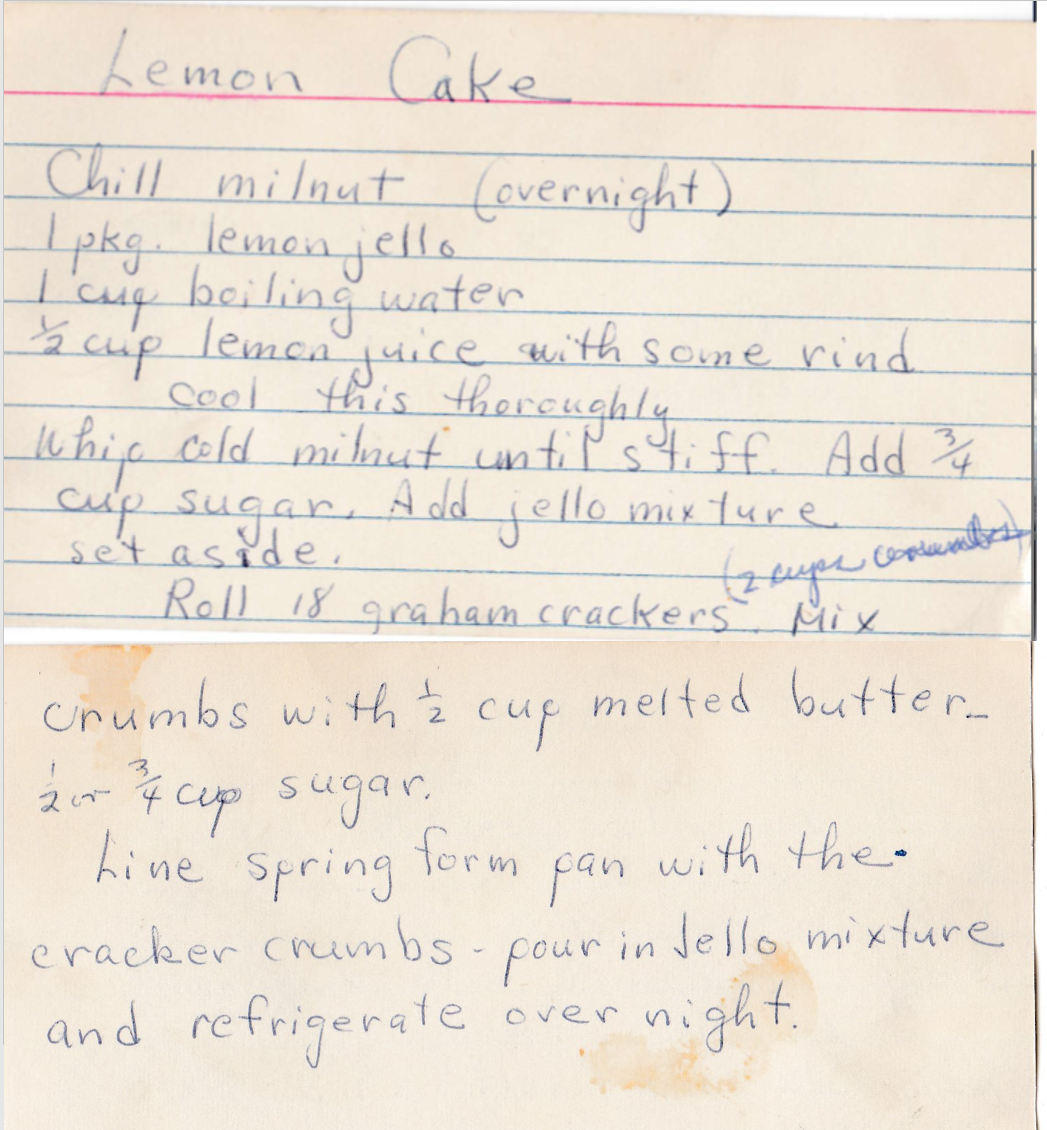 Lemon Cake
Chill milnut (overnight)
1 pkg. lemon jello
1 cup boiling water
½ cup lemon juice with some rind
cool this thoroughly
Whip cold milnut until stiff. Add ¾
cup sugar. Add jello mixture
set aside.
(2 cups
Roll 18 graham crackers. Mix
crumbs with ½ cup melted butter-
½ or ¾ cup sugar.
Line spring form pan with the
cracker crumbs - pour in Jello mixture
and refrigerate over night.